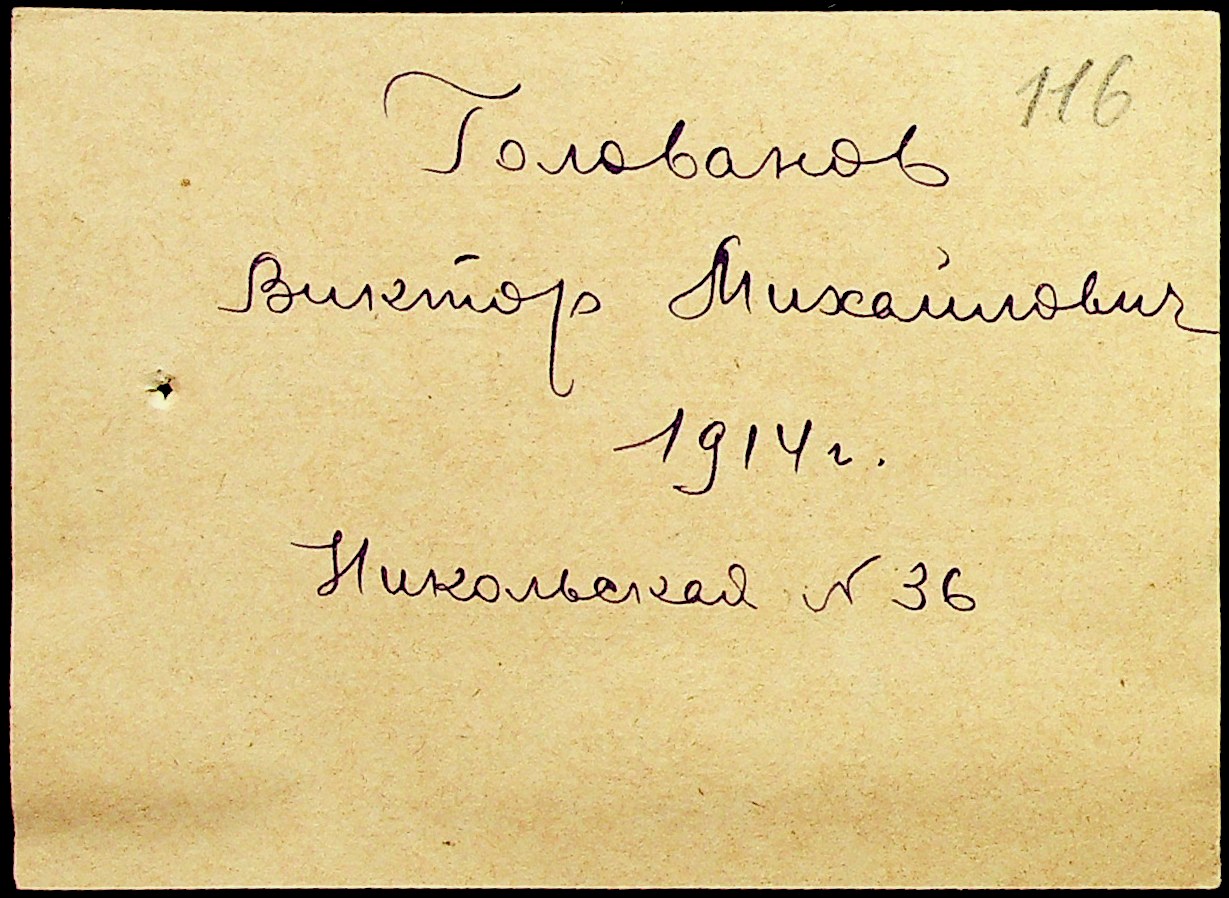 116
Голованов
Виктор Михайлович
1914г.
Никольская N 36